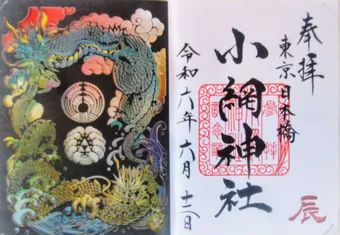 奉拝
東京日本橋
小網神社
令和六年六月十二日
辰